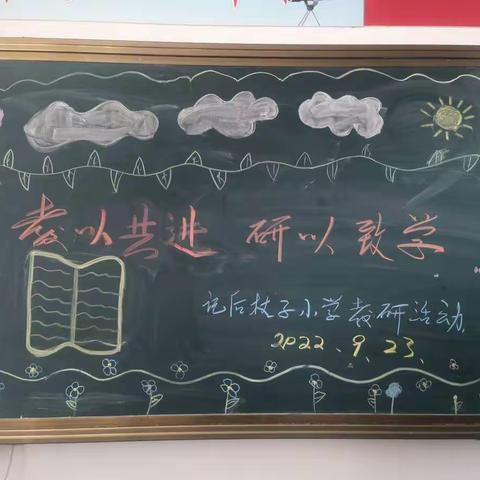 教以共进 研以致学
记后杖子小学教研活动
2022、9、23、